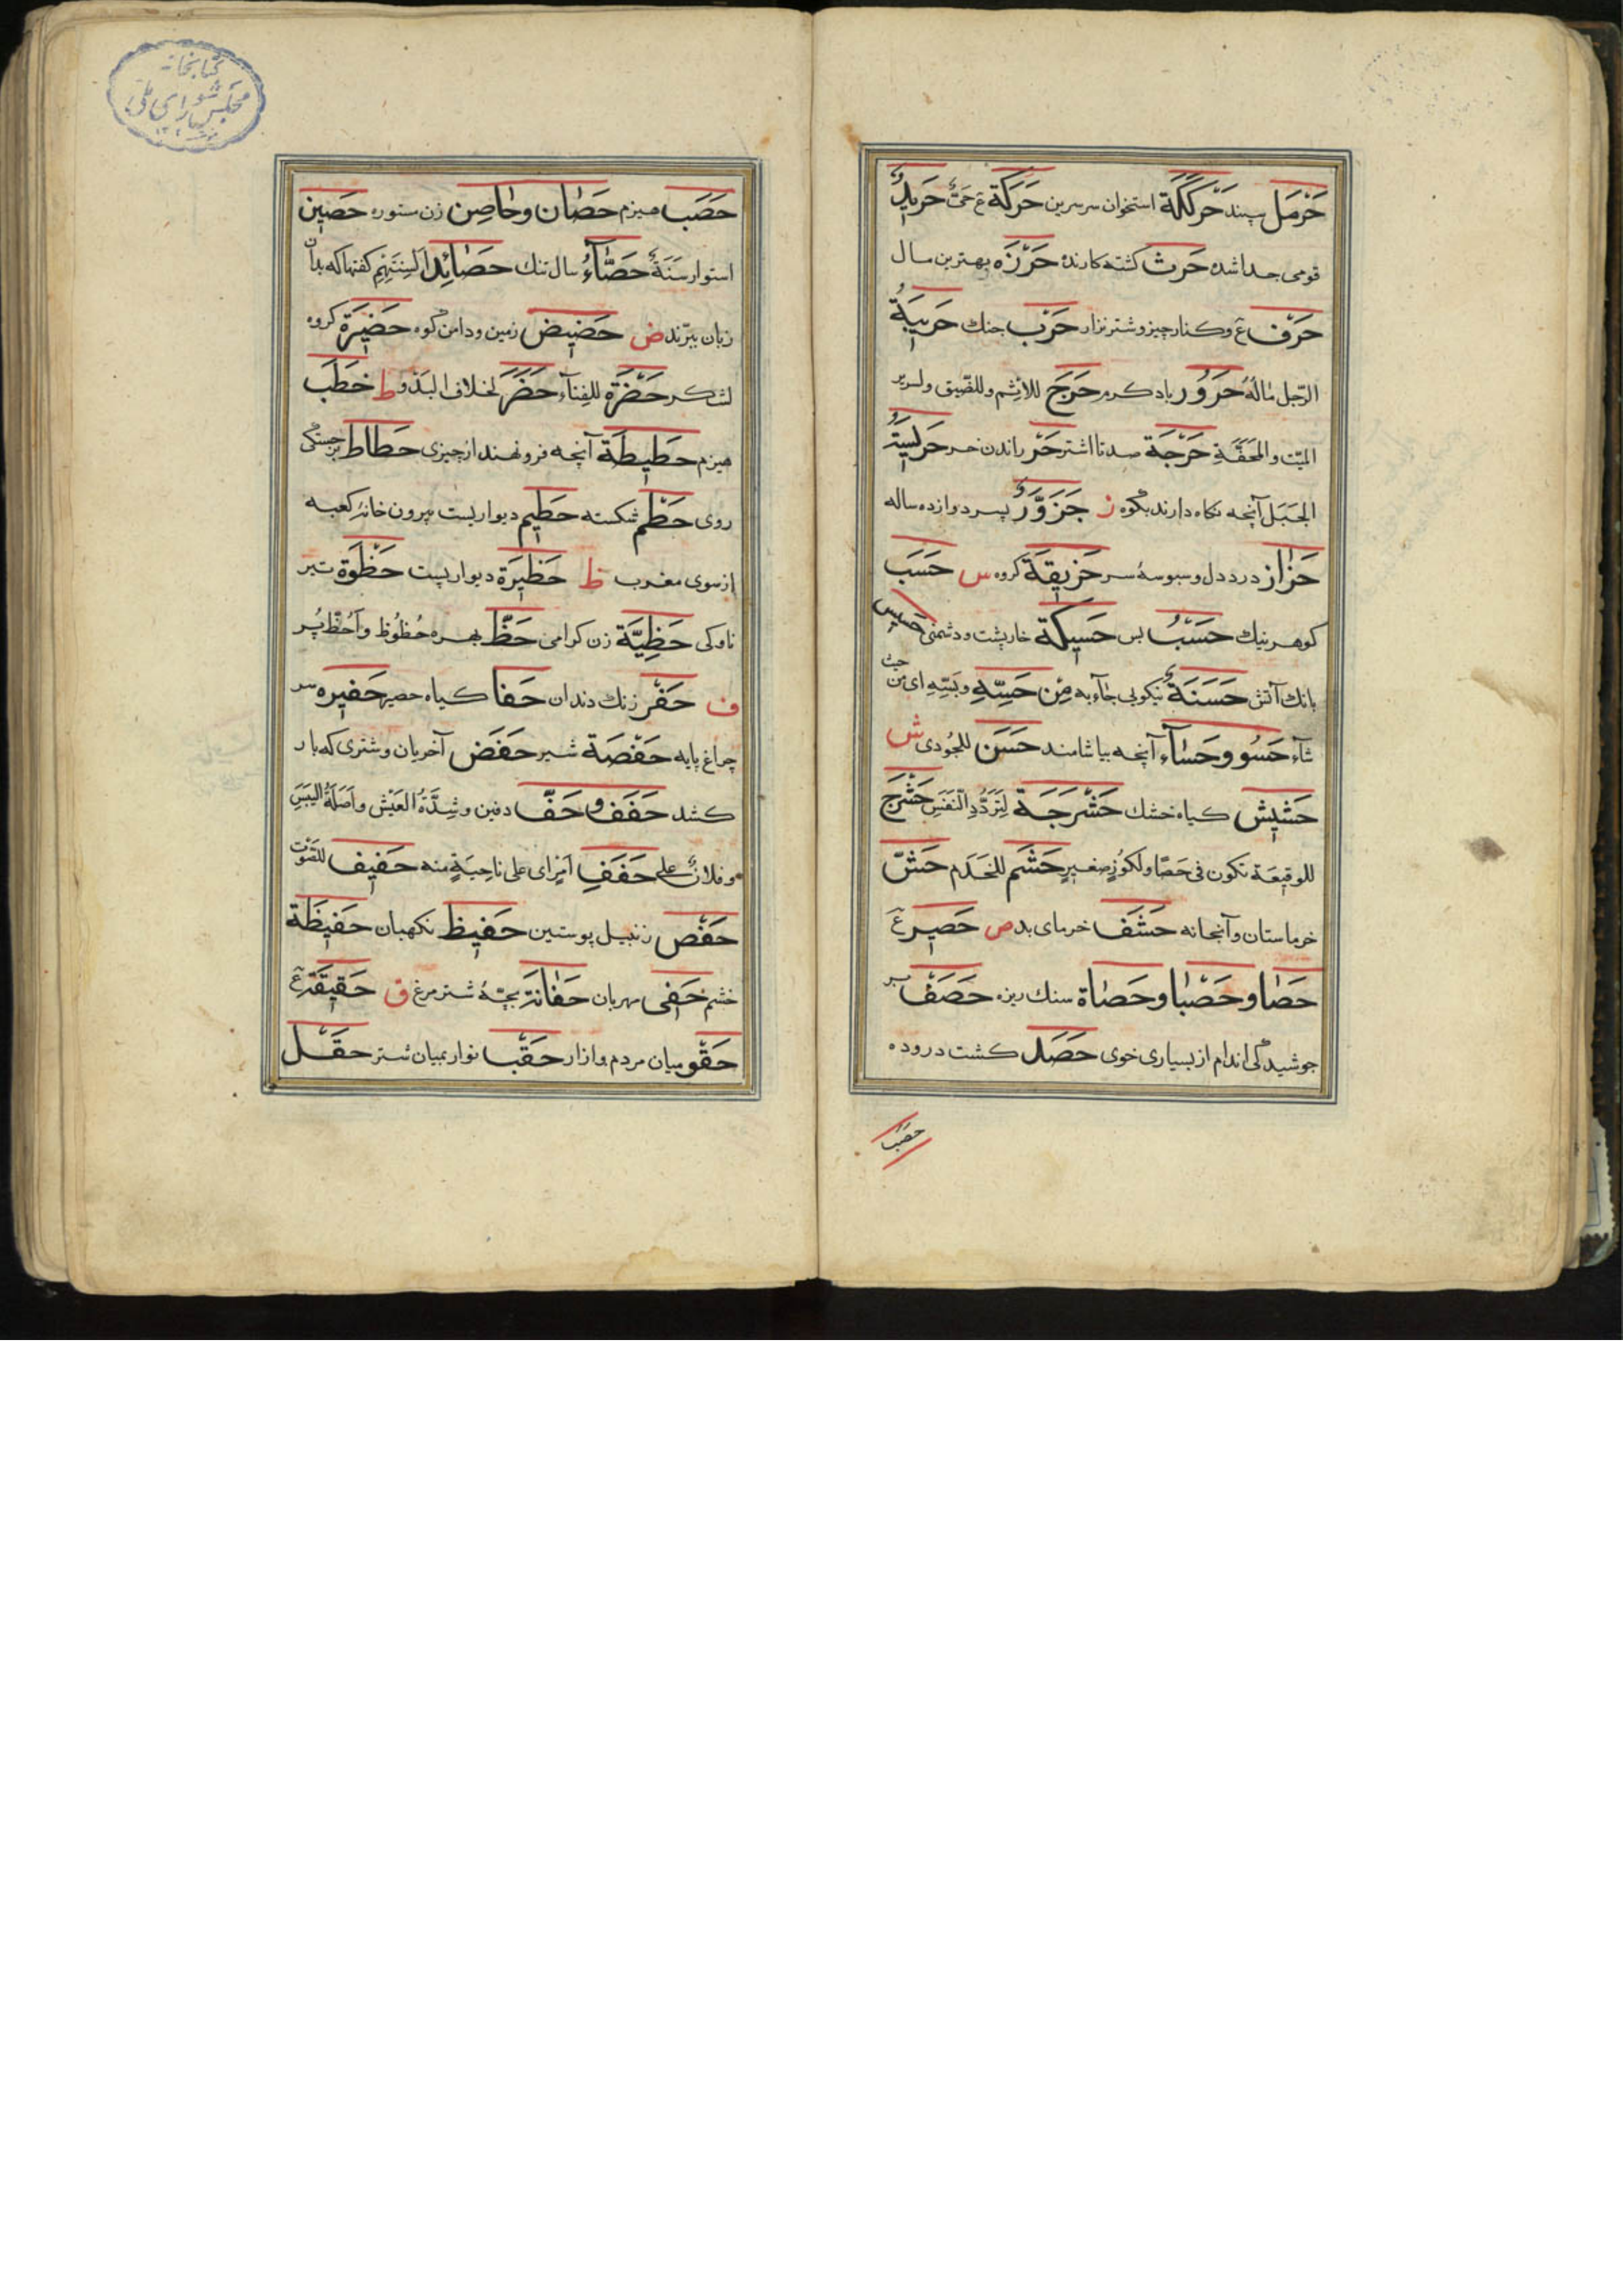 حَرْمَل سپند حَرْكَكَة استخوان سرسرین حَرَكَة ع حَیٌّ حَرِیدٌ
قومی جداشده حَرث کشته کارنده حَرْزَه بهترین سال
حَرْف ع وکنار چیز وشتر نزار حَرْب جنك حَرِیبَةُ
الرّجل مالَهُ حَرُور باد کرم حَرَج للاثم وللضّیق ولسریر
المیّت والمَحَفَّةِ حَرْجَة صد تا اشتر حَرْ راندن خر حَرِیسَةُ
الجَبَل آنچه نکاه دارند بکوه ز حَزَوَّرٌ پسر دوازده ساله
حَزاز درد دل وسبوسهٔ سر حَزِیقَة کروه س حَسَب
کوهر نیك حَسْبُ بس حَسِیكَة خارپشت ودشمنی حَسِیس
بانك آتش حَسَنَة نیکویی جآء به مِنْ حَسِّهِ وبَسِّهِ ای من حیث
شآء حَسُو وحَسآء آنچه بیاشامند حَسَن للجُودی ش
حَشِیش کیاه خشك حَشْرَجَة لِتَرَدُّدِ النَّفَسِ حَشْرَج
للوقیعَة تکون فی حَصًا ولکُوزٍ صغیرٍ حَشَم للخَدَم حَشّ
خرماستان وآبخانه حَشَف خرمای بد ص حَصِیر ع
حَصا وحَصْبا وحَصاة سنك ریزه حَصَف بر
جوشیدکی اندام از بسیاری خوی حَصَد کشت دروده
حصَب
کتابخانه
مجلس شورای ملی
حَصَب هیزم حَصان وحاصِن زن ستوره حَصِین
استوار سَنَةٌ حَصّآءُ سال تنك حَصائِدُ اَلسِنَتِهِمْ کفتها که بدان
زبان ببرّند ض حَضِیض زمین ودامن کوه حَضِیرَة کروه
لشکر حَضْرَة للفِنآء حَضَر لخلاف البَدْو ط حَطَب
هیزم حَطِیطَة آنچه فرو نهند از چیزی حَطاط برجستکی
روی حَطْم شکسته حَطِیم دیواریست بیرون خانهٔ کعبه
از سوی مغرب ظ حَظِیرَة دیوار پست حَظْوَة تیر
ناوکی حَظِیَّة زن کرامی حَظّ بهره حُظُوظ واَحُظّ پُر
ف حَفْر زنك دندان حَفا کیاه حصیر حَفِیره سر
چراغ پایه حَفْصَة شیر حَفَض آخریان وشتری که بار
کشد حَفَف وحَفّ دفین وشِدَّةُ العَیْش واَصَلَةُ الیَبَسِ
وفلانٌ علی حَفَفِ اَمْرٍ ای علی ناحِیَةٍ منه حَفِیف للصَّوْت
حَفْص زنبیل پوستین حَفِیظ نکهبان حَفِیظَة
خشم حَفی مهربان حَفانَة بچّهٔ شترمرغ ق حَقِیقَة ع
حَقْو میان مردم وازار حَقَب نوار بمیان شتر حَقْل